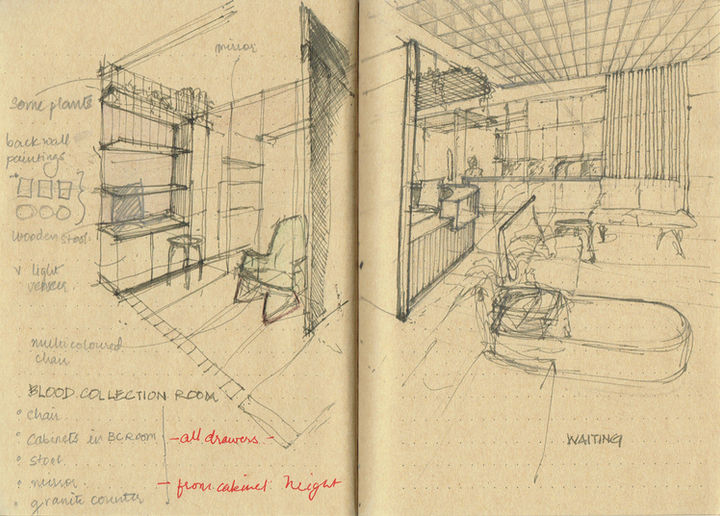 mirror
some plants
back wall
paintings
wooden stool
v light
veneer
multicoloured
chair
BLOOD COLLECTION ROOM
chair
cabinets in BC ROOM
- all drawers -
stool
mirror
- from cabinet height
granite counter
WAITING